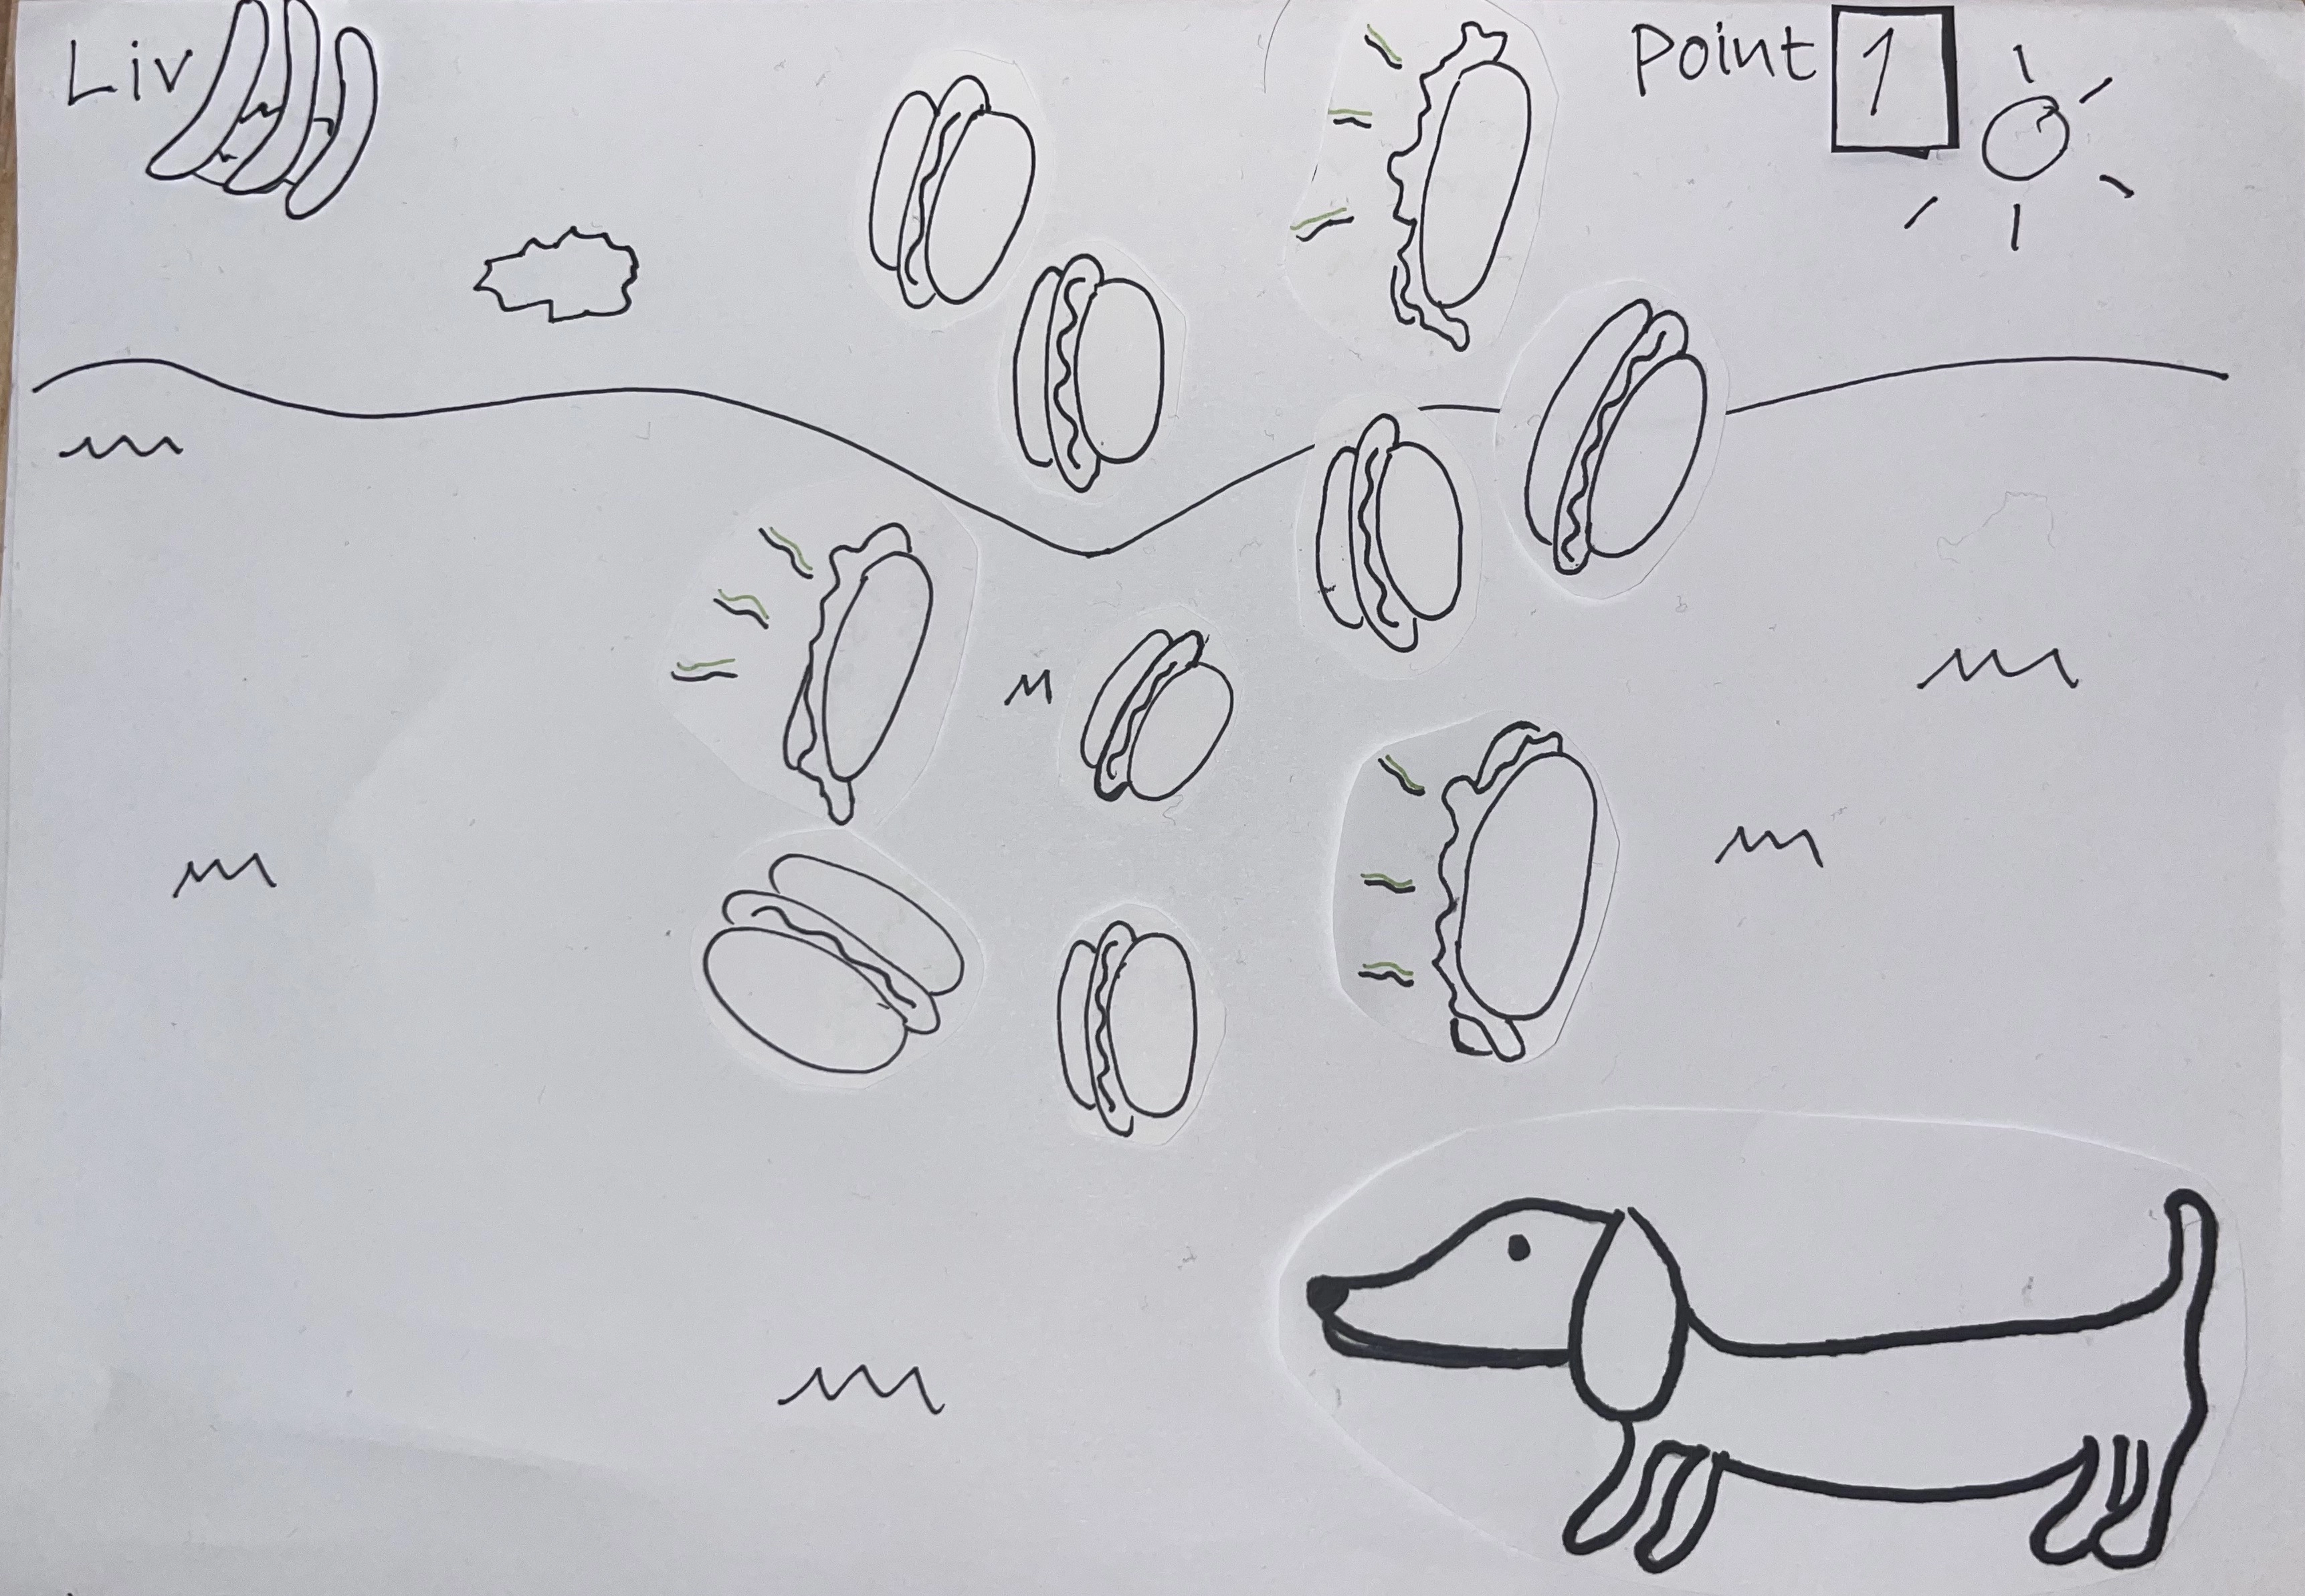 Liv
Point 1